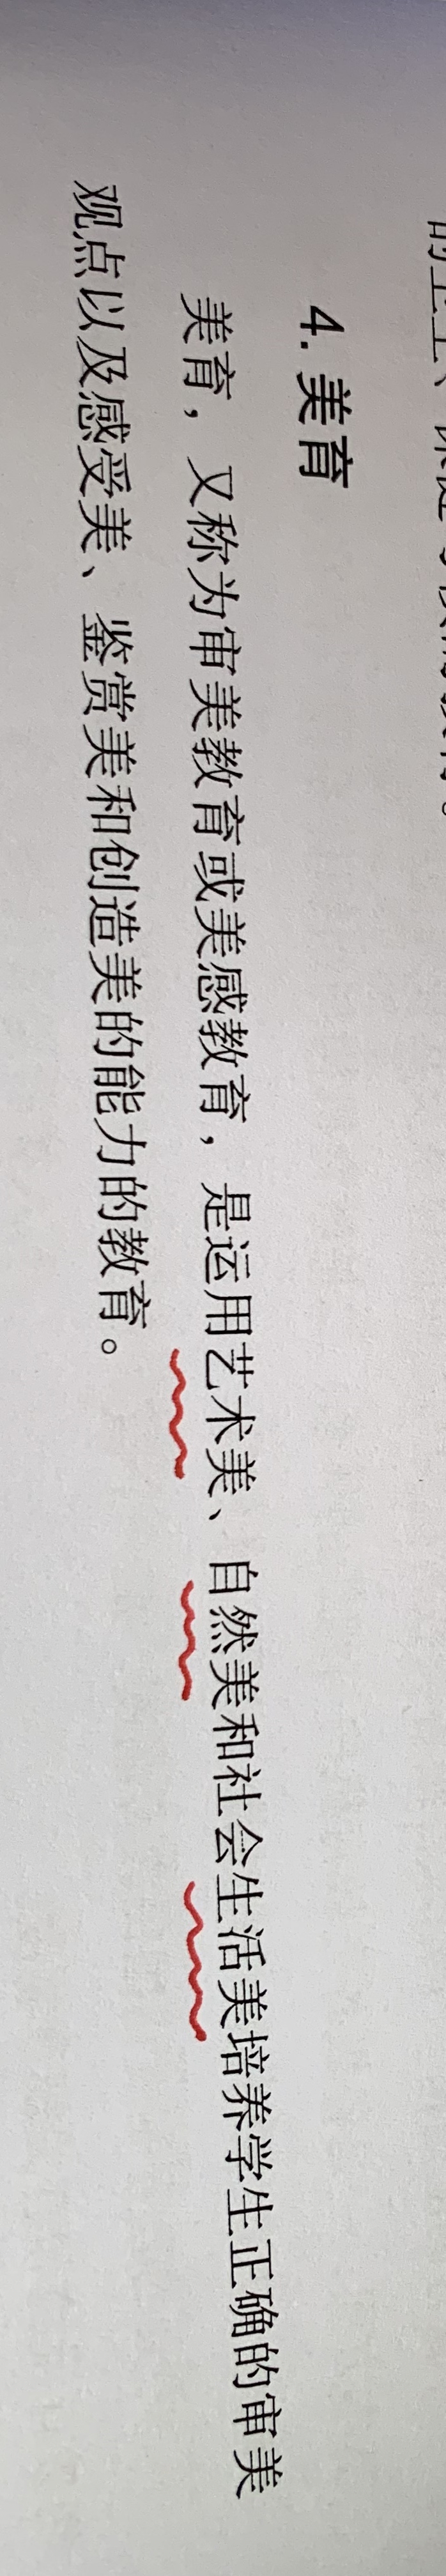 4. 美育
美育，又称为审美教育或美感教育，是运用艺术美、自然美和社会生活美培养学生正确的审美
观点以及感受美、鉴赏美和创造美的能力的教育。